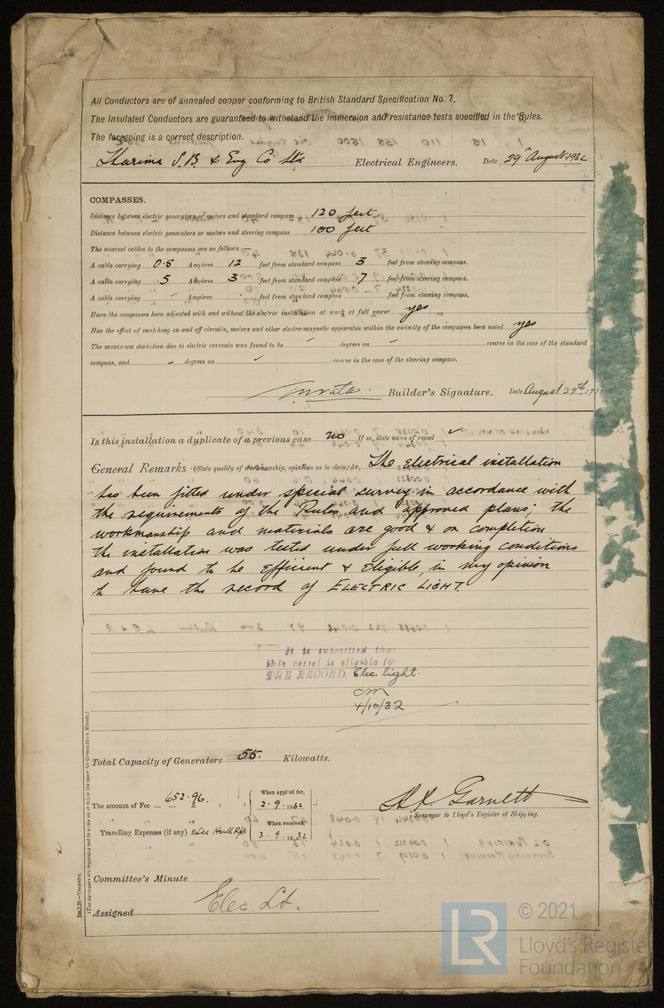 All Conductors are of annealed copper conforming to British Standard Specification No. 7.
The Insulated Conductors are guaranteed to withstand the immersion and resistance tests specified in the Rules.
The foregoing is a correct description.
Harima S.B & Eng Co Ltd Electrical Engineers. Date 29th August 1932
COMPASSES.
Distance between electric generators or motors and standard compass 120 feet
Distance between electric generators or motors and steering compass 100 feet
The nearest cables to the compasses are as follows:—
A cable carrying 0.5 Ampères 12 feet from standard compass 3 feet from steering compass.
A cable carrying 5 Ampères 3 feet from standard compass 7 feet from steering compass.
A cable carrying Ampères feet from standard compass feet from steering compass.
Have the compasses been adjusted with and without the electric installation at work at full power yes
Has the effect of switching on and off circuits, motors and other electro-magnetic apparatus within the vicinity of the compasses been noted yes
The maximum deviation due to electric currents was found to be degrees on course in the case of the standard
compass, and degrees on course in the case of the steering compass.
Builder's Signature. Date August 29th
Is this installation a duplicate of a previous case no If so, state name of vessel
General Remarks (State quality of workmanship, opinions as to class, &c. The electrical installation
has been fitted under special survey in accordance with
the requirements of the Rules and approved plans; the
workmanship and materials are good & on completion
the installation was tested under full working conditions
and found to be efficient & Eligible, in my opinion
to have the record of ELECTRIC LIGHT.
It is submitted that
this vessel is eligible for
THE RECORD. Elec. light.
4/10/32
Total Capacity of Generators 55. Kilowatts.
The amount of Fee ... 652.96. : :
When applied for,
2.9.1932
H.J. Garnett
Surveyor to Lloyd's Register of Shipping.
Travelling Expenses (if any) See Hull Rpt
When received,
3.9.1932
Committee's Minute
Assigned Elec Lt.
© 2021
Lloyd's Register
Foundation
LR